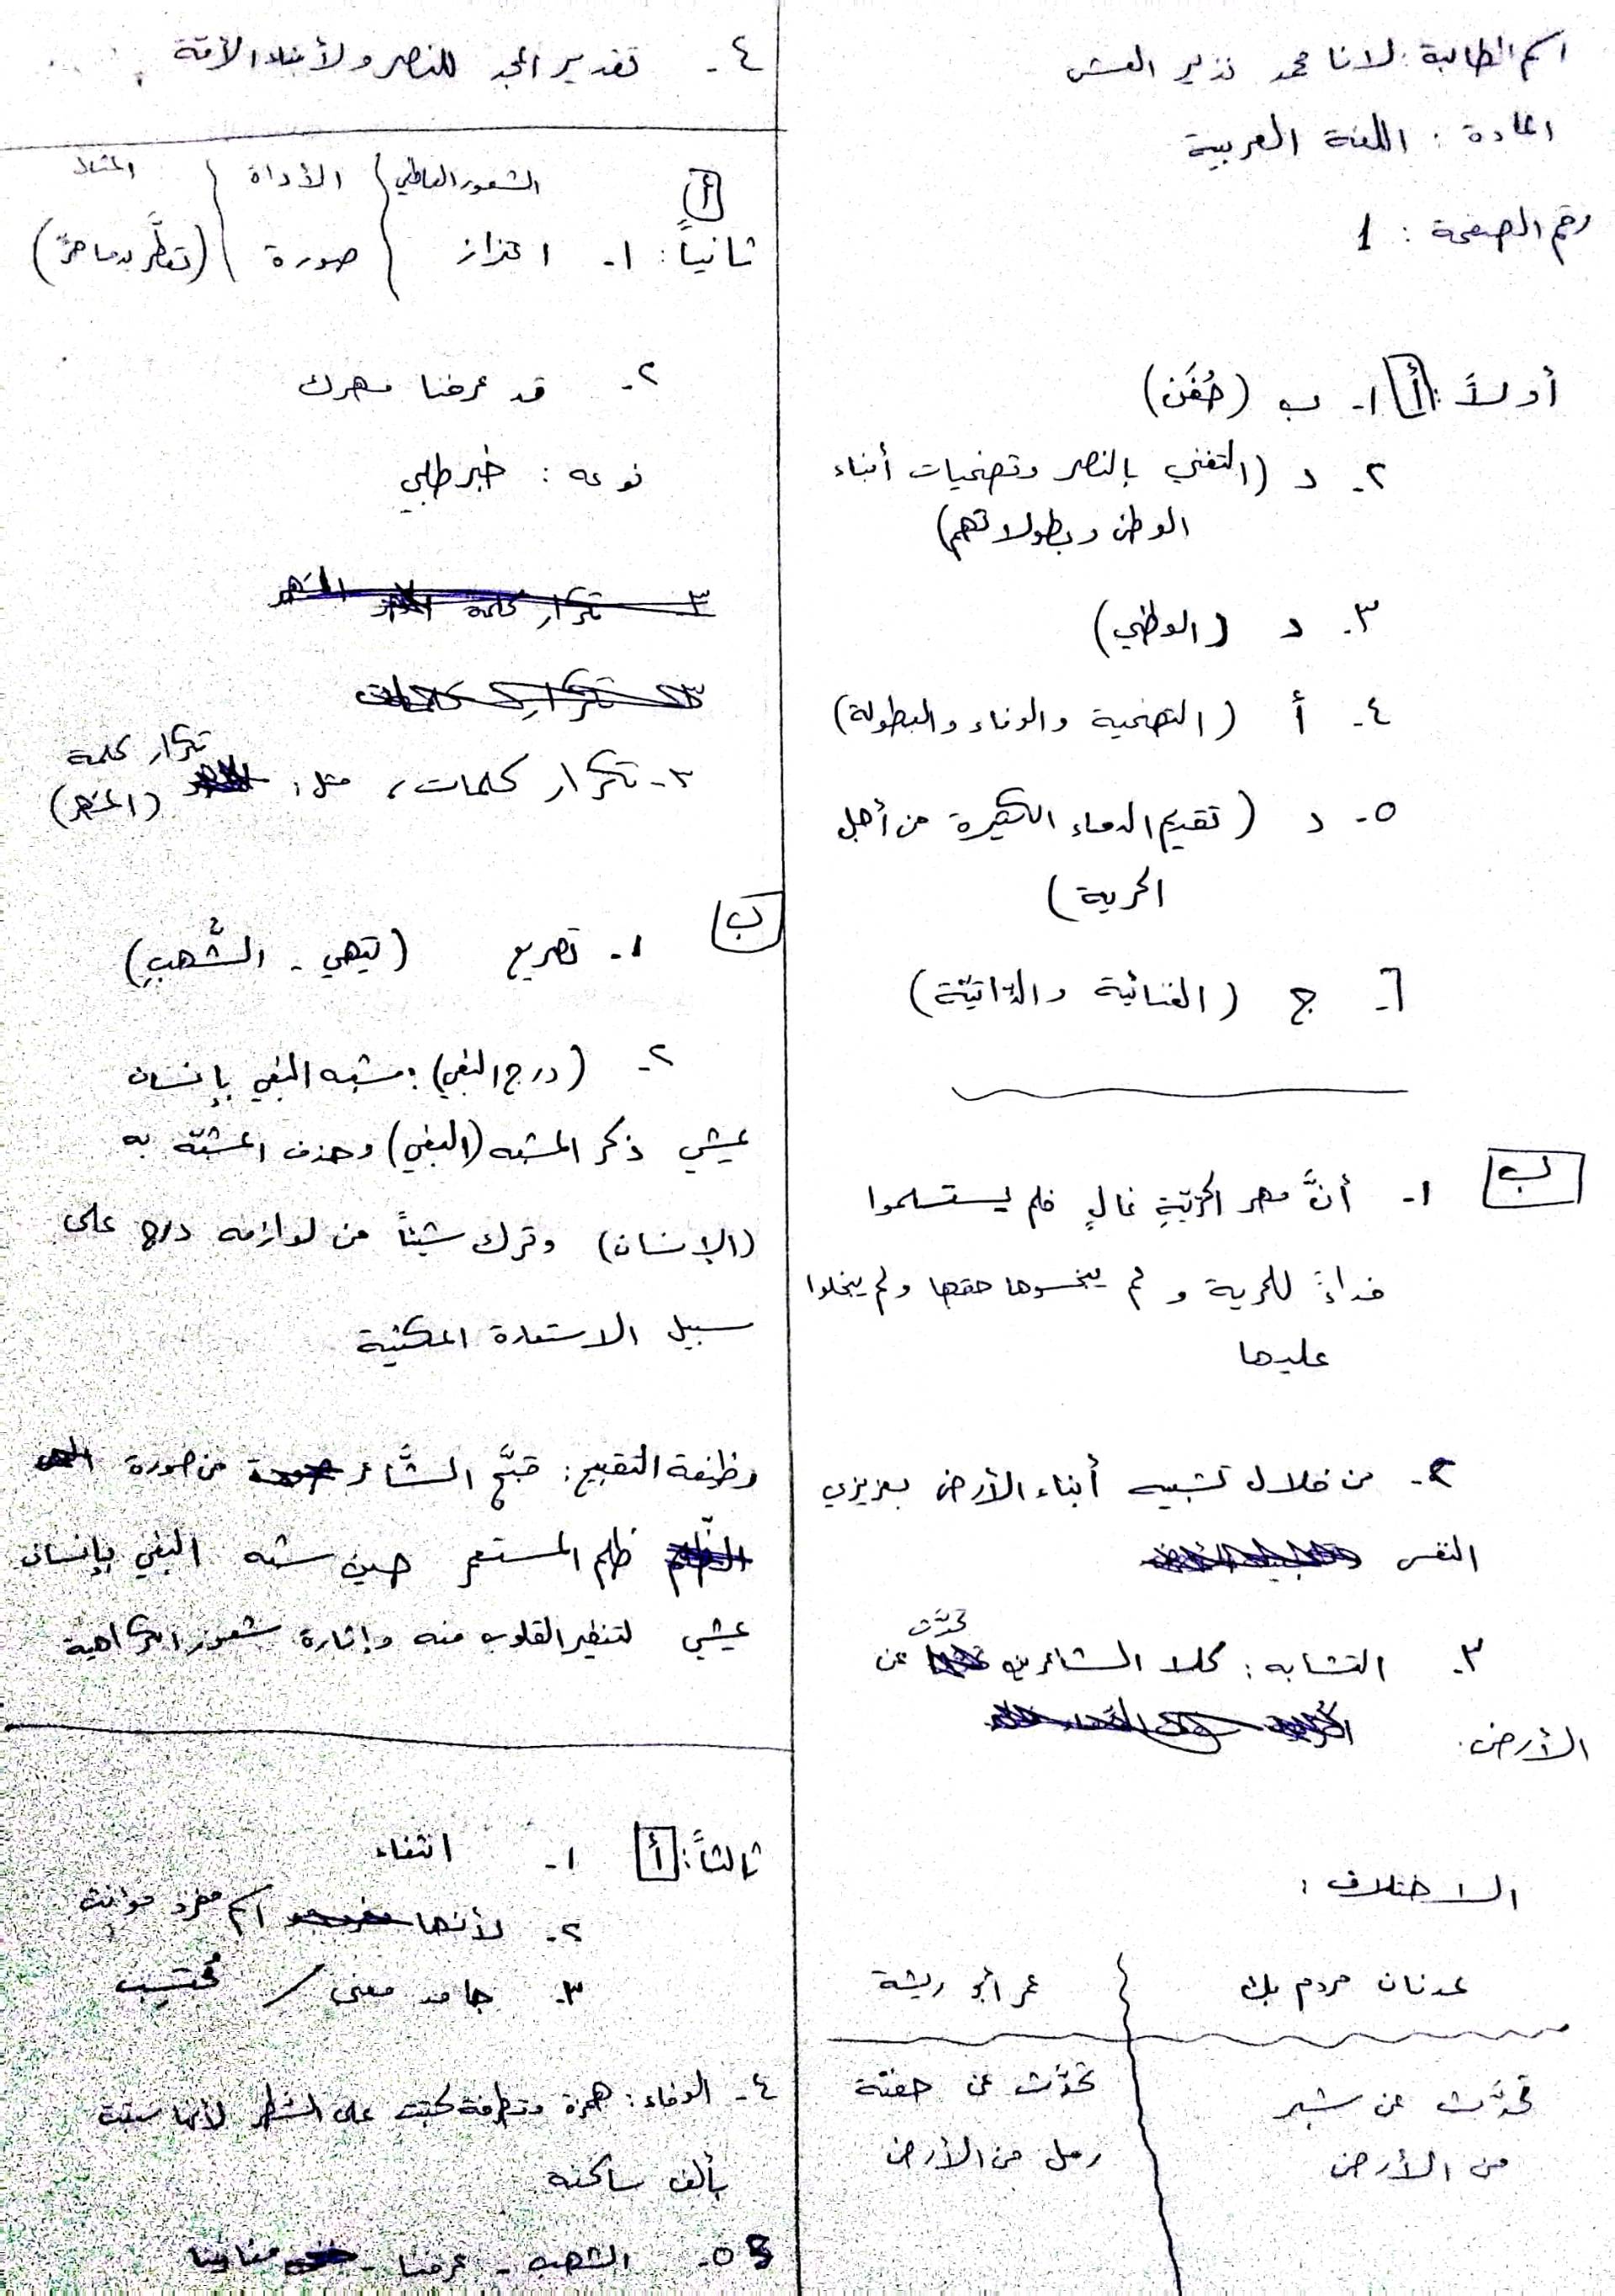 اسم الطالبة: لانا محمد نذير العش
المادة: اللغة العربية
رقم الصفحة: 1
أولاً: أ ١- ب (حُفَن)
٢- د (التغني بالنصر وتضحيات أبناء
الوطن وبطولاتهم)
٣- د (الوطني)
٤- أ (التضحية والوفاء والبطولة)
٥- د (تقديم الدماء الكثيرة من أجل
الحرية)
٦- ج (الغنائية والذّاتيّة)
ب ١- أنَّ مهر الحريّةِ غالٍ فلم يستسلموا
فداءً للحرية و لم يبخسوها حقها ولم يبخلوا
عليها
٢- من خلال تشبيه أبناء الأرض بعزيزي
النفس
٣- التشابه: كلا الشاعرين تحدَّث عن
الأرض.
الاختلاف:
عدنان مردم بك عمر أبو ريشة
تحدَّث عن شبر تحدَّث عن حفنة
من الأرض رمل من الأرض
٤- تقدير المجد للنصر ولأبناء الأمة
الشعور العاطفي الأداة المثال
أ
ثانياً: ١- اعتزاز صورة (تعطَّر بدما حرّ)
٢- قد عرفنا مهرك
نوعه: خبر طلبي
٣- تكرار كلمة المهر
٣- تكرار كلمات
٣- تكرار كلمات، مثل: تكرار كلمة (المهر)
ب ١- تصريع (تيهي - الشُّهبِ)
٢- (درج البغي): شبه البغي بإنسان
يمشي ذكر المشبه (البغي) وحذف المشبّه به
(الإنسان) وترك شيئاً من لوازمه درج على
سبيل الاستعارة المكنية
وظيفة التقبيح: قبَّح الشَّاعر من صورة
ظلم المستعمر حين شبه البغي بإنسان
يمشي لتنفير القلوب منه وإثارة شعور الكراهية
ثالثاً: أ ١- انتفاء
٢- لأنها اسم مفرد مؤنث
٣- جامد معنى /
٤- الوفاء: همزة متطرفة كتبت على السطر لأنها سبقت
بألف ساكنة
٥- الشهب - عرفنا -